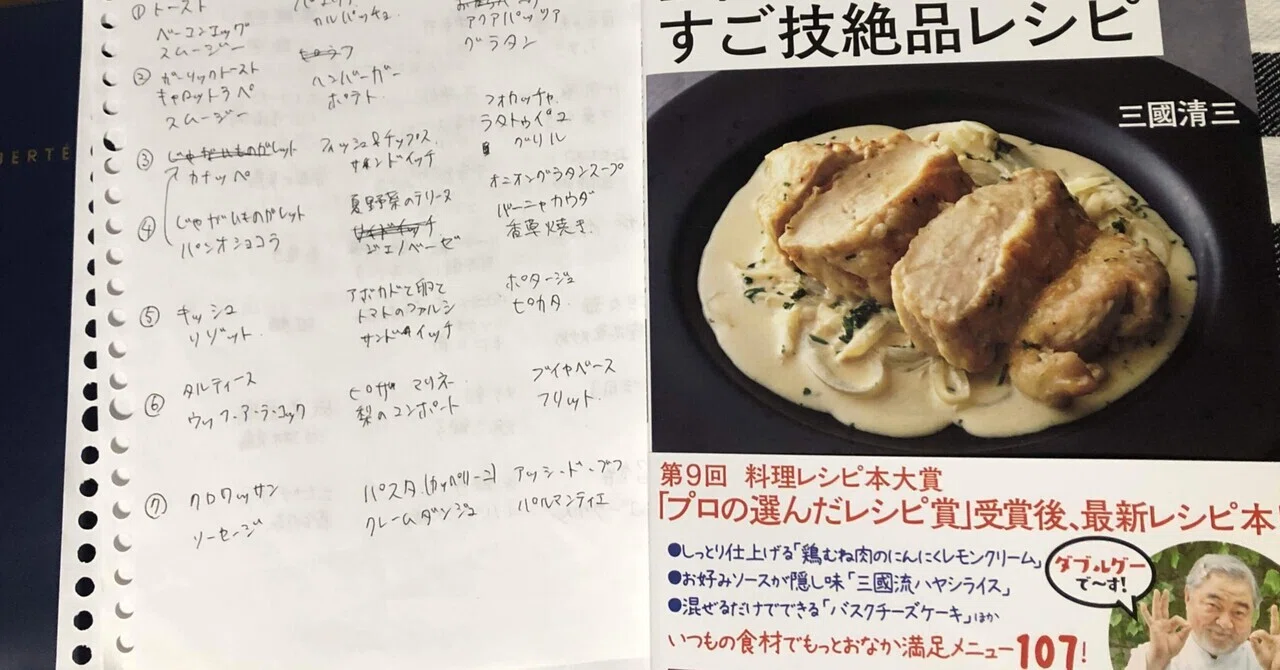 UERTÉ
①トースト
ベーコンエッグ
スムージー
カルパッチョ
アクアパッツァ
グラタン
②ガーリックトースト
キャロットラペ
スムージー
ピラフ
ハンバーガー
ポテト
フォカッチャ
ラタトゥイユ
グリル
③じゃがいものガレット
カナッペ
フィッシュ&チップス
サンドイッチ
④じゃがいものガレット
パンオショコラ
夏野菜のテリーヌ
サンドイッチ
ジェノベーゼ
オニオングラタンスープ
バーニャカウダ
香草焼き
⑤キッシュ
リゾット
アボカドと卵と
トマトのファルシ
サンドイッチ
ポタージュ
ピカタ
⑥タルティーヌ
ウッフ・ア・ラ・コック
ピザ マリネ
梨のコンポート
ブイヤベース
フリット
⑦クロワッサン
ソーセージ
パスタ(カッペリーニ)
クレームダンジュ
アッシ・ド・ブフ
パルマンティエ
すご技絶品レシピ
三國清三
第9回 料理レシピ本大賞
「プロの選んだレシピ賞」受賞後、最新レシピ本
●しっとり仕上げる「鶏むね肉のにんにくレモンクリーム」
●お好みソースが隠し味「三國流ハヤシライス」
●混ぜるだけでできる「バスクチーズケーキ」ほか
いつもの食材でもっとおなか満足メニュー107!
ダブルグー
で〜す!